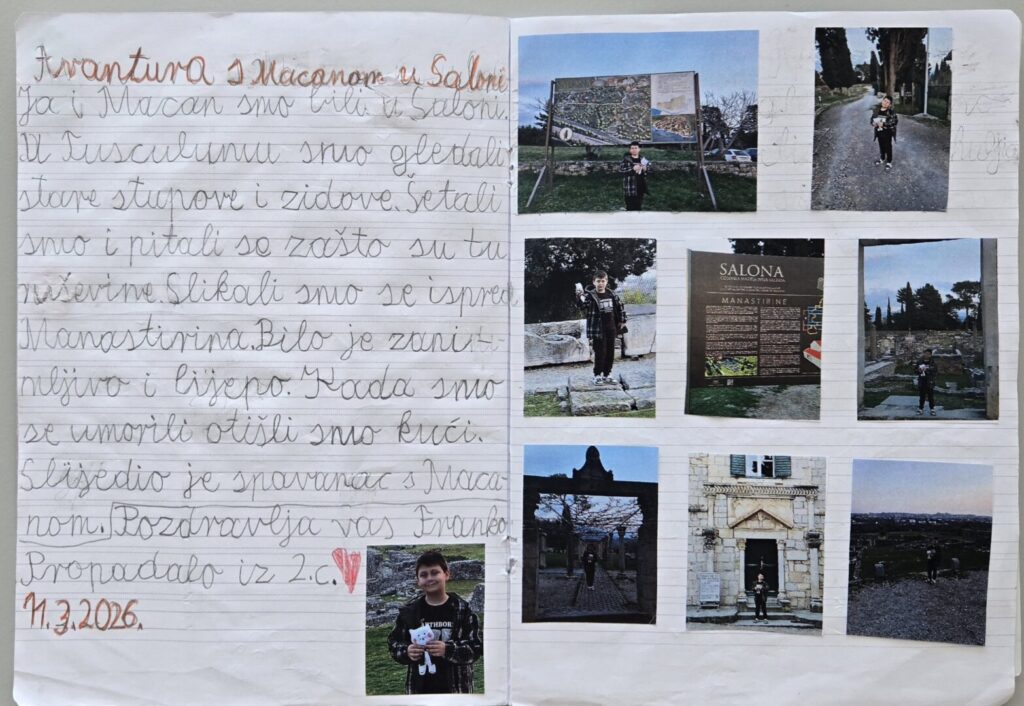 Avantura s Macanom u Saloni
Ja i Macan smo bili u Saloni.
U Tusculumu smo gledali
stare stupove i zidove. Šetali
smo i pitali se zašto su tu
ruševine. Slikali smo se ispred
Manastirina. Bilo je zani-
mljivo i lijepo. Kada smo
se umorili otišli smo kući.
Slijedio je spavanac s Maca-
nom. Pozdravlja vas Franko
Propadalo iz 2.c.
11.3.2026.
SALONA
MANASTIRINE